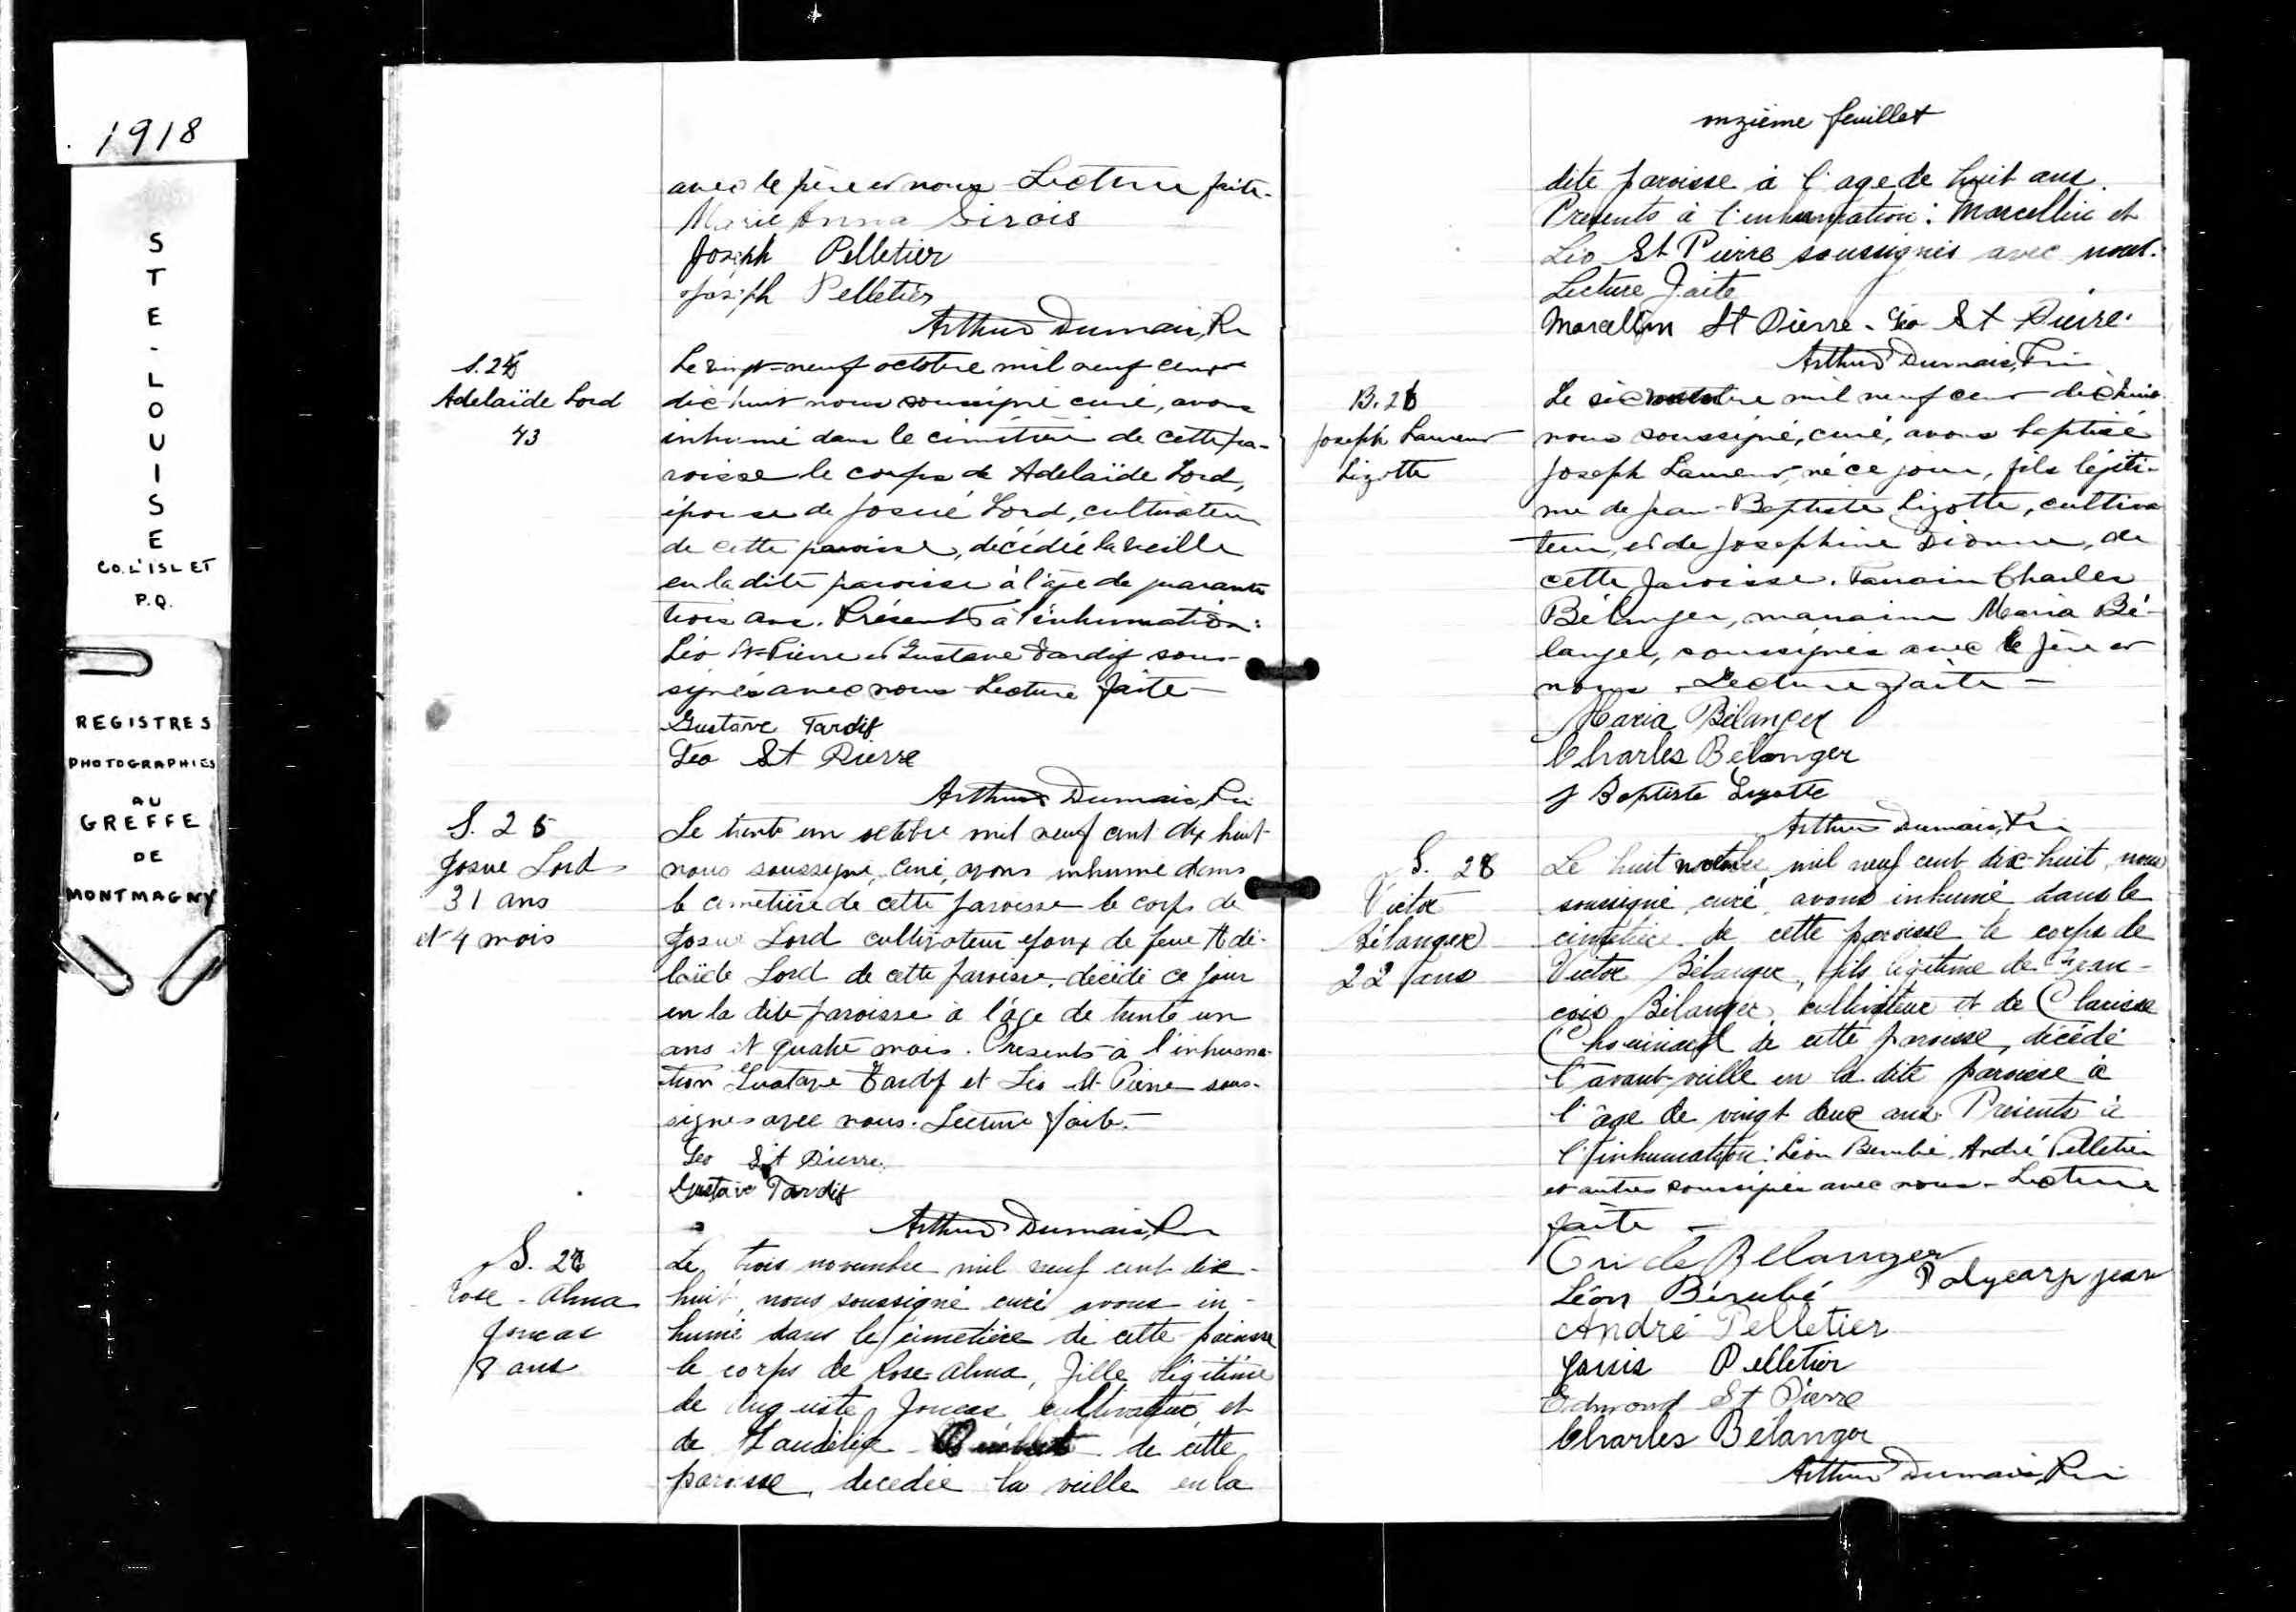 1918
STE-LOUISE
CO. L'ISLET
P.Q.
REGISTRES
PHOTOGRAPHIES
AU
GREFFE
DE
MONTMAGNY
avec le père et nous - Lecture faite.
Marie Anna Sirois
Joseph Pelletier
Joseph Pelletier
Arthur Dumais, Ptre
S. 24
Adelaïde Lord
43
Le vingt-neuf octobre mil neuf cent
dix-huit nous soussigné curé, avons
inhumé dans le cimetière de cette pa-
roisse le corps de Adelaïde Lord,
épouse de Josué Lord, cultivateur
de cette paroisse, décédée la veille
en la dite paroisse à l'âge de quarante
trois ans. Présents à l'inhumation:
Léo St-Pierre et Gustave Tardif sous-
signés avec nous - Lecture faite -
Gustave Tardif
Léo St Pierre
Arthur Dumais, Ptre
S. 25
Josue Lord
31 ans
et 4 mois
Le trente un octobre mil neuf cent dix huit
nous soussigné, curé, avons inhumé dans
le cimetière de cette paroisse le corps de
Josué Lord cultivateur epoux de feue Adé-
laïde Lord de cette paroisse, décédé ce jour
en la dite paroisse à l'âge de trente un
ans et quatre mois. Presents à l'inhuma-
tion Gustave Tardif et Léo St-Pierre sous-
signés avec nous. Lecture faite. -
Leo St Pierre
Gustave Tardif
Arthur Dumais, Ptre
S. 26
Rose-Alma
Joncas
8 ans
Le trois novembre mil neuf cent dix-
huit, nous soussigné curé avons in-
humé dans le cimetière de cette paroisse
le corps de Rose-Alma, fille légitime
de Auguste Joncas, cultivateur et
de de cette
paroisse, decedée la veille en la
onzième feuillet
dite paroisse à l'age de huit ans.
Presents à l'inhumation: Marcellin et
Léo St Pierre soussignés avec nous.
Lecture faite
Marcellin St Pierre - Léo St Pierre.
Arthur Dumais, Ptre
B. 26
Joseph Laurent
Lizotte
Le six novembre mil neuf cent dix huit
nous soussigné, curé, avons baptisé
Joseph Laurent, né ce jour, fils légiti-
me de Jean-Baptiste Lizotte, cultiva
teur, et de Josephine Dionne, de
cette paroisse. Parrain Charles
Bélanger, marraine Maria Bé-
langer, soussignés avec le père et
nous - Lecture faite -
Maria Bélanger
Charles Bélanger
J Baptiste Lizotte
Arthur Dumais, Ptre
S. 28
Victor
Bélanger
22 ans
Le huit novembre mil neuf cent dix-huit, nous
soussigné, curé, avons inhumé dans le
cimetière de cette paroisse le corps de
Victor Bélanger, fils légitime de Fran-
çois Bélanger, cultivateur et de Clarisse
Chouinard de cette paroisse, décédé
l'avant-veille en la dite paroisse à
l'âge de vingt deux ans. Présents à
l'inhumation: Léon Bérubé, André Pelletier
et autres soussignés avec nous - Lecture
faite -
Bélanger
Polycarp jean
Léon Bérubé
André Pelletier
Pelletier
Edmond St Pierre
Charles Bélanger
Arthur Dumais, Ptre